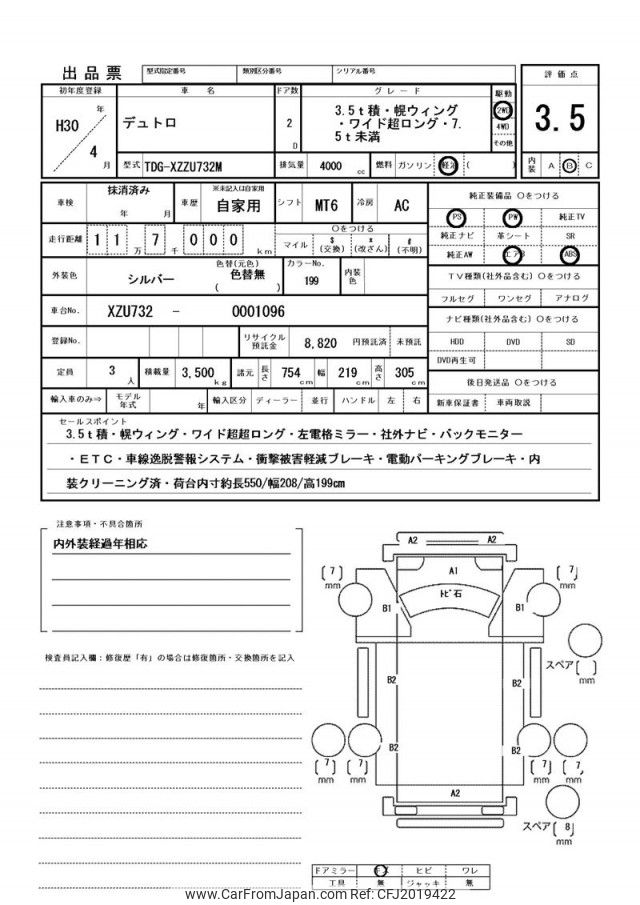 出品票
型式指定番号 類別区分番号 シリアル番号
評価点
3.5
初年度登録 車名 ドア数 グレード 駆動
H30 年 4 月
デュトロ
2 D
3.5t積・幌ウィング
・ワイド超ロング・7.
5t未満
2WD
4WD
その他
型式 TDG-XZZU732M 排気量 4000 cc 燃料 ガソリン 軽油 ( )
内装 A B C
車検 抹消済み 年 月
車歴 ※未記入は自家用 自家用
シフト MT6 冷房 AC
純正装備品 ○をつける
PS PW 純正TV
純正ナビ 革シート SR
純正AW エアB ABS
走行距離 1 1 万 7 千 0 0 0 km
○をつける
マイル $(交換) *(改ざん) #(不明)
外装色 シルバー 色替(元色) 色替無 ( )
カラーNo. 199 内装色
TV種類(社外品含む) ○をつける
フルセグ ワンセグ アナログ
車台No. XZU732 - 0001096
ナビ種類(社外品含む) ○をつける
HDD DVD SD
DVD再生可
登録No. リサイクル預託金 8,820 円預託済 未預託
定員 3 人 積載量 3,500 kg 諸元 長さ 754 cm 幅 219 cm 高さ 305 cm
後日発送品 ○をつける
新車保証書 車両取説
輸入車のみ⇒ モデル年式 年 輸入区分 ディーラー 並行 ハンドル 左 右
セールスポイント
3.5t積・幌ウィング・ワイド超超ロング・左電格ミラー・社外ナビ・バックモニター
・ETC・車線逸脱警報システム・衝撃被害軽減ブレーキ・電動パーキングブレーキ・内
装クリーニング済・荷台内寸約長550/幅208/高199cm
注意事項・不具合箇所
内外装経過年相応
検査員記入欄：修復歴「有」の場合は修復箇所・交換箇所を記入
A2 A2
A1
トビ石
[7] mm
[7] mm
B1 B1
スペア[ ] mm
B2 B2
B2 B2
[7] mm [7] mm
[7] mm [7] mm
A2
スペア[8] mm
ドアミラー キズ ヒビ ワレ
工具 無 ジャッキ 無
www.CarFromJapan.com Ref: CFJ2019422